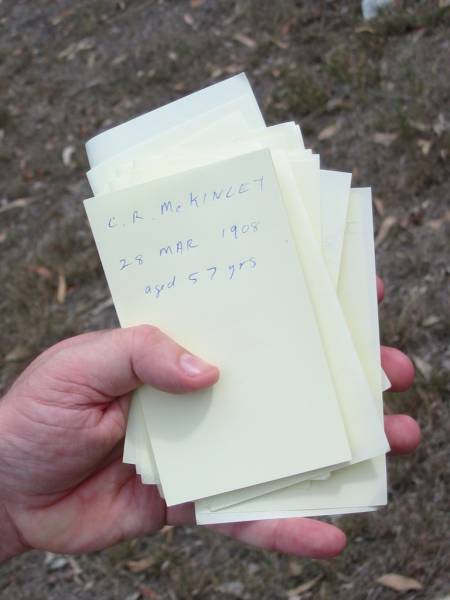 C. R. McKINLEY
28 MAR 1908
aged 57 yrs